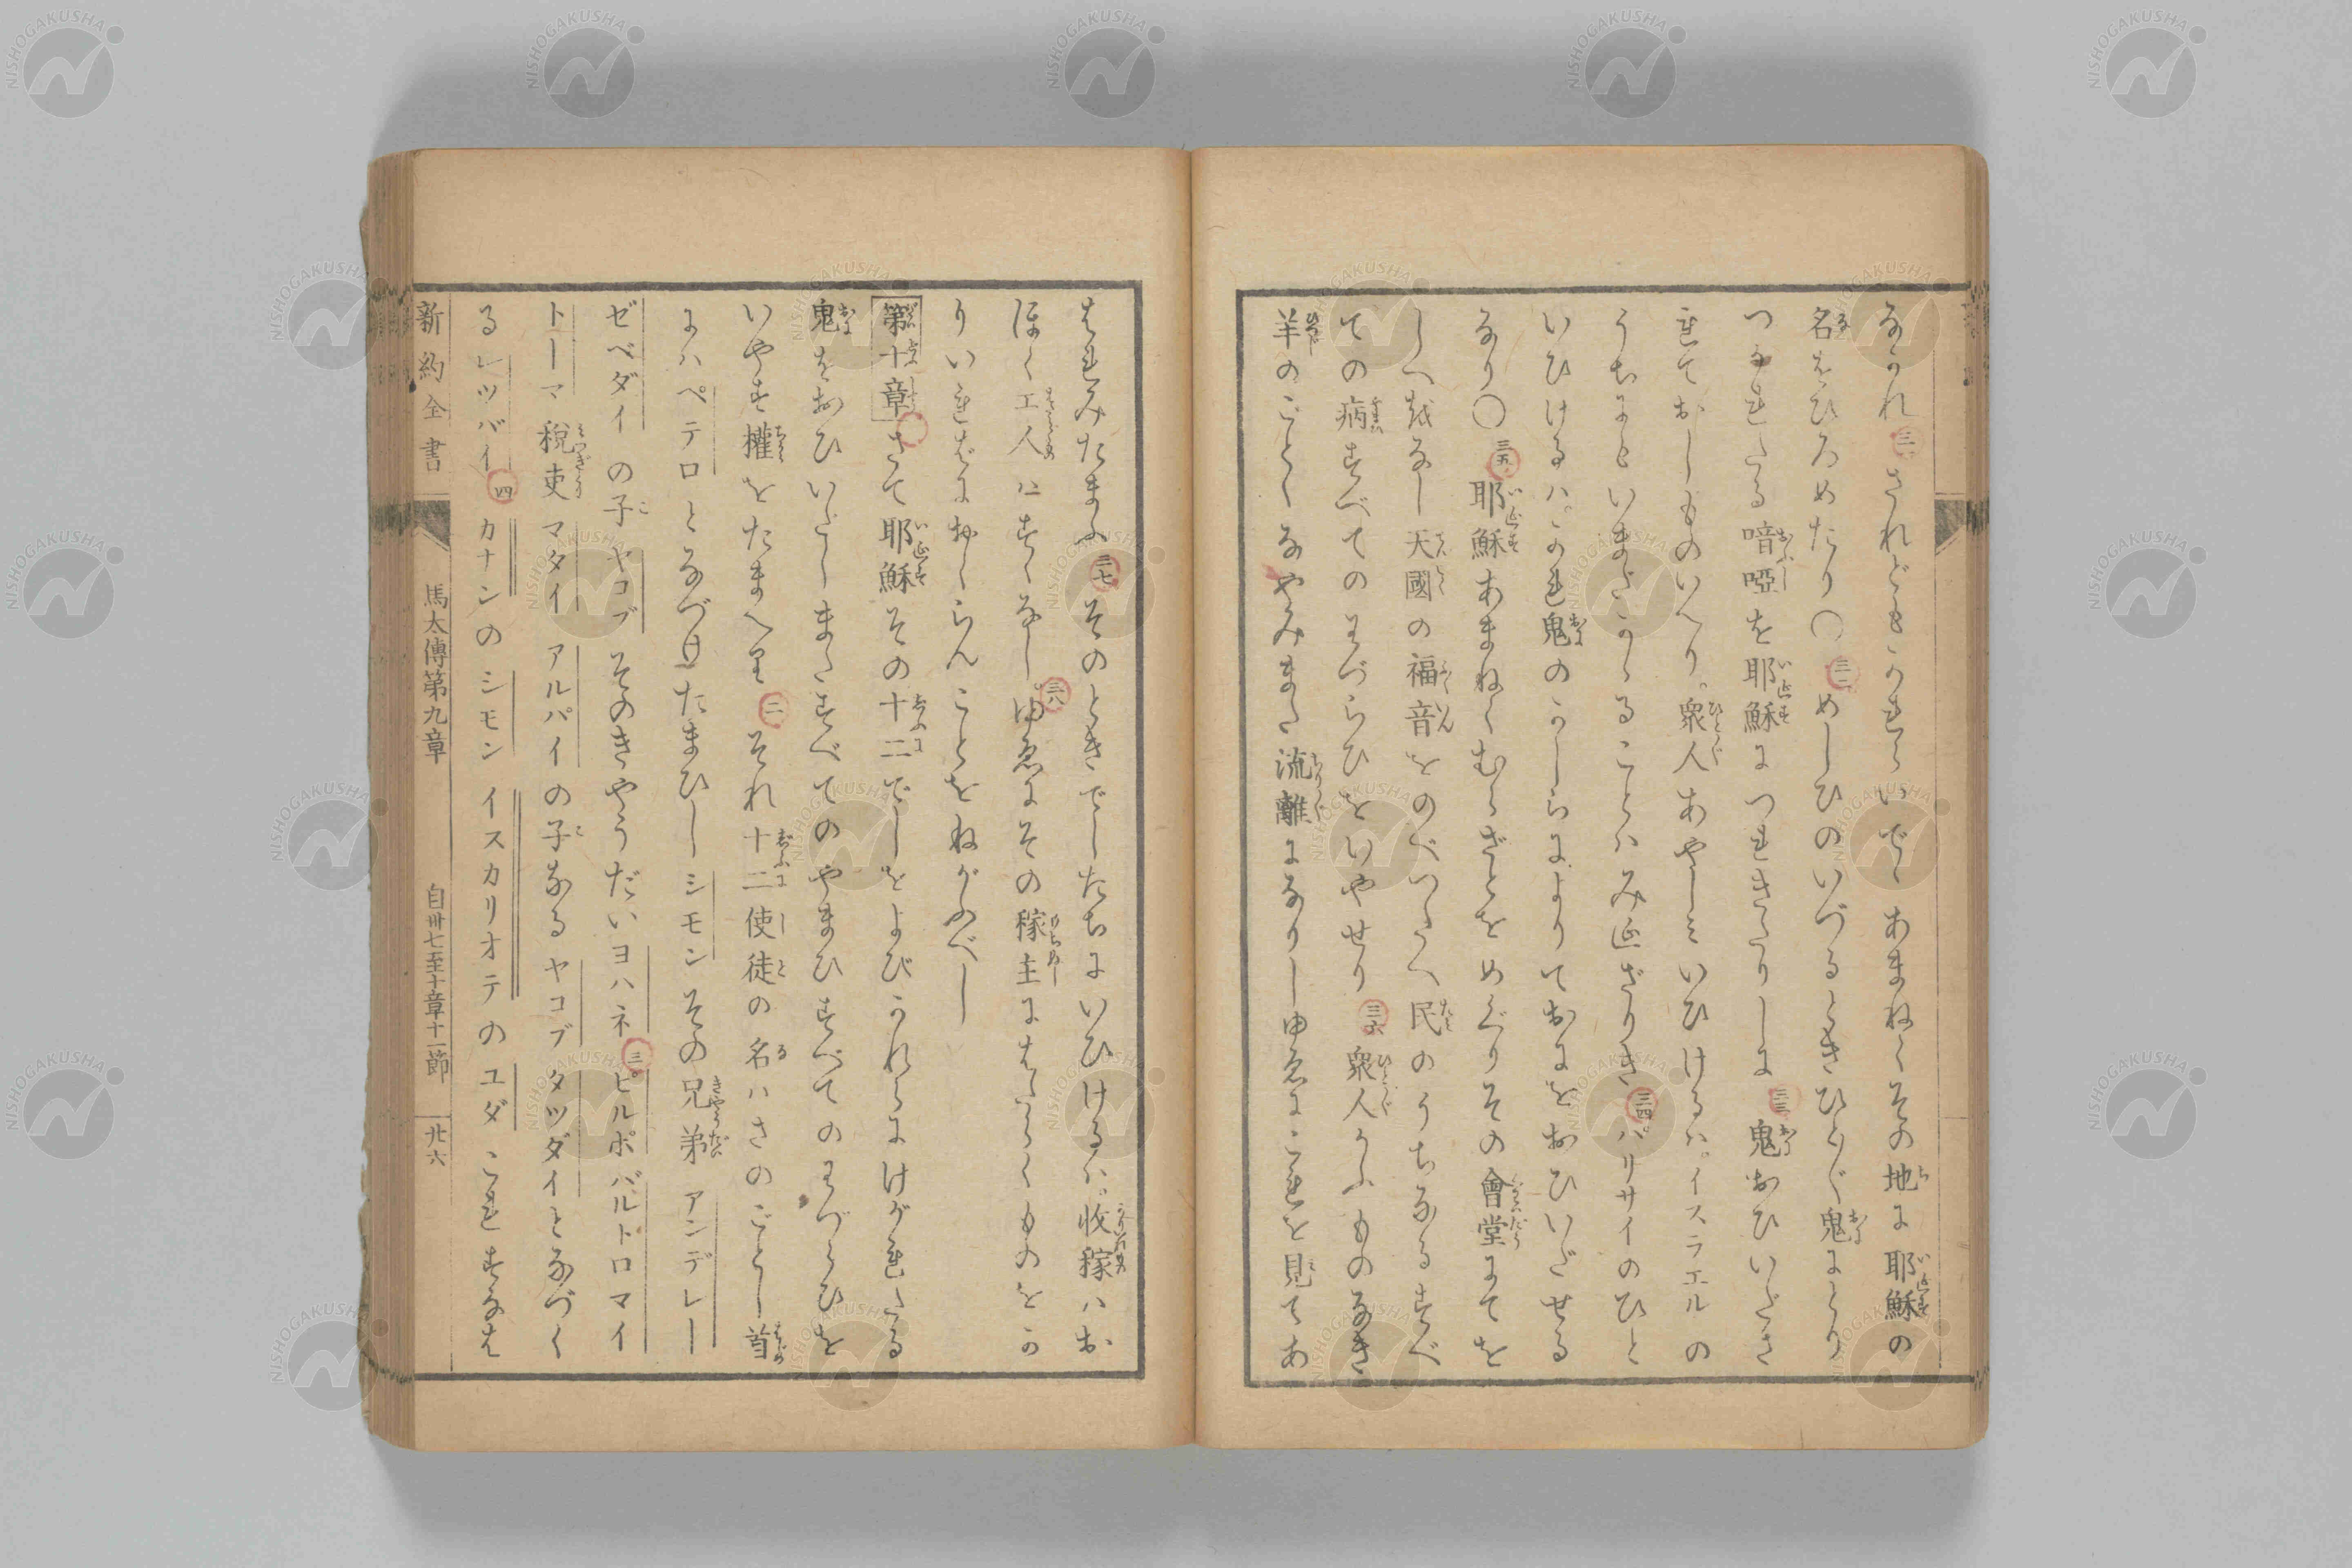 なかれ三一されどもかれらいでゝあまねくその地に耶穌の
名をひろめたり〇三二めしひのいづるときひとびと鬼にとり
つかれたる喑啞を耶穌につれきたりしに三三鬼おひいださ
れておしものいへり。衆人あやしみいひけるハ。イスラエルの
うちにといまだかゝることハみえざりき三四パリサイのひと
いひけるハ。かれ鬼のかしらによりておにをおひいだせる
なり〇三五耶穌あまねくむらざとをめぐりその會堂にてを
しへ越なし天國の福音をのべつたへ民のうちなるすべ
ての病すべてのわづらひをいやせり三六衆人かふものなき
羊のごとくなやみまた流離になりしゆゑにこれを見てあ
はれみたまふ三七そのときでしたちにいひけるハ。收稼ハお
ほく工人ハすくなし三八ゆゑにその稼主にはたらくものをか
りいればにおくらんことをねがふべし
第十章さて耶穌その十二でしをよびかれらにけがれたる
鬼をおひいだしまたすべてのやまひすべてのわづらひを
いやす權をたまへり二それ十二使徒の名ハさのごとし首
にハペテロとなづけたまひしシモンその兄弟アンデレー
ゼベダイの子ヤコブそのきやうだいヨハネ三ピルポバルトロマイ
トーマ稅吏マタイアルパイの子なるヤコブタツダイとなづく
るレツバイ四カナンのシモンイスカリオテのユダこれすなは
新約全書 馬太傳第九章 自卅七至十章十一節 廿六
NISHOGAKUSHA